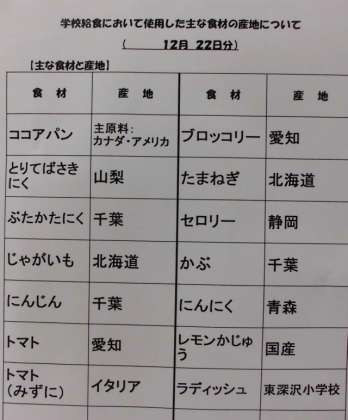 学校給食において使用した主な食材の産地について
( 12月 22日分)
【主な食材と産地】
食 材 産 地 食 材 産 地
ココアパン 主原料:カナダ・アメリカ ブロッコリー 愛知
とりてばさきにく 山梨 たまねぎ 北海道
ぶたかたにく 千葉 セロリー 静岡
じゃがいも 北海道 かぶ 千葉
にんじん 千葉 にんにく 青森
トマト 愛知 レモンかじゅう 国産
トマト(みずに) イタリア ラディッシュ 東深沢小学校